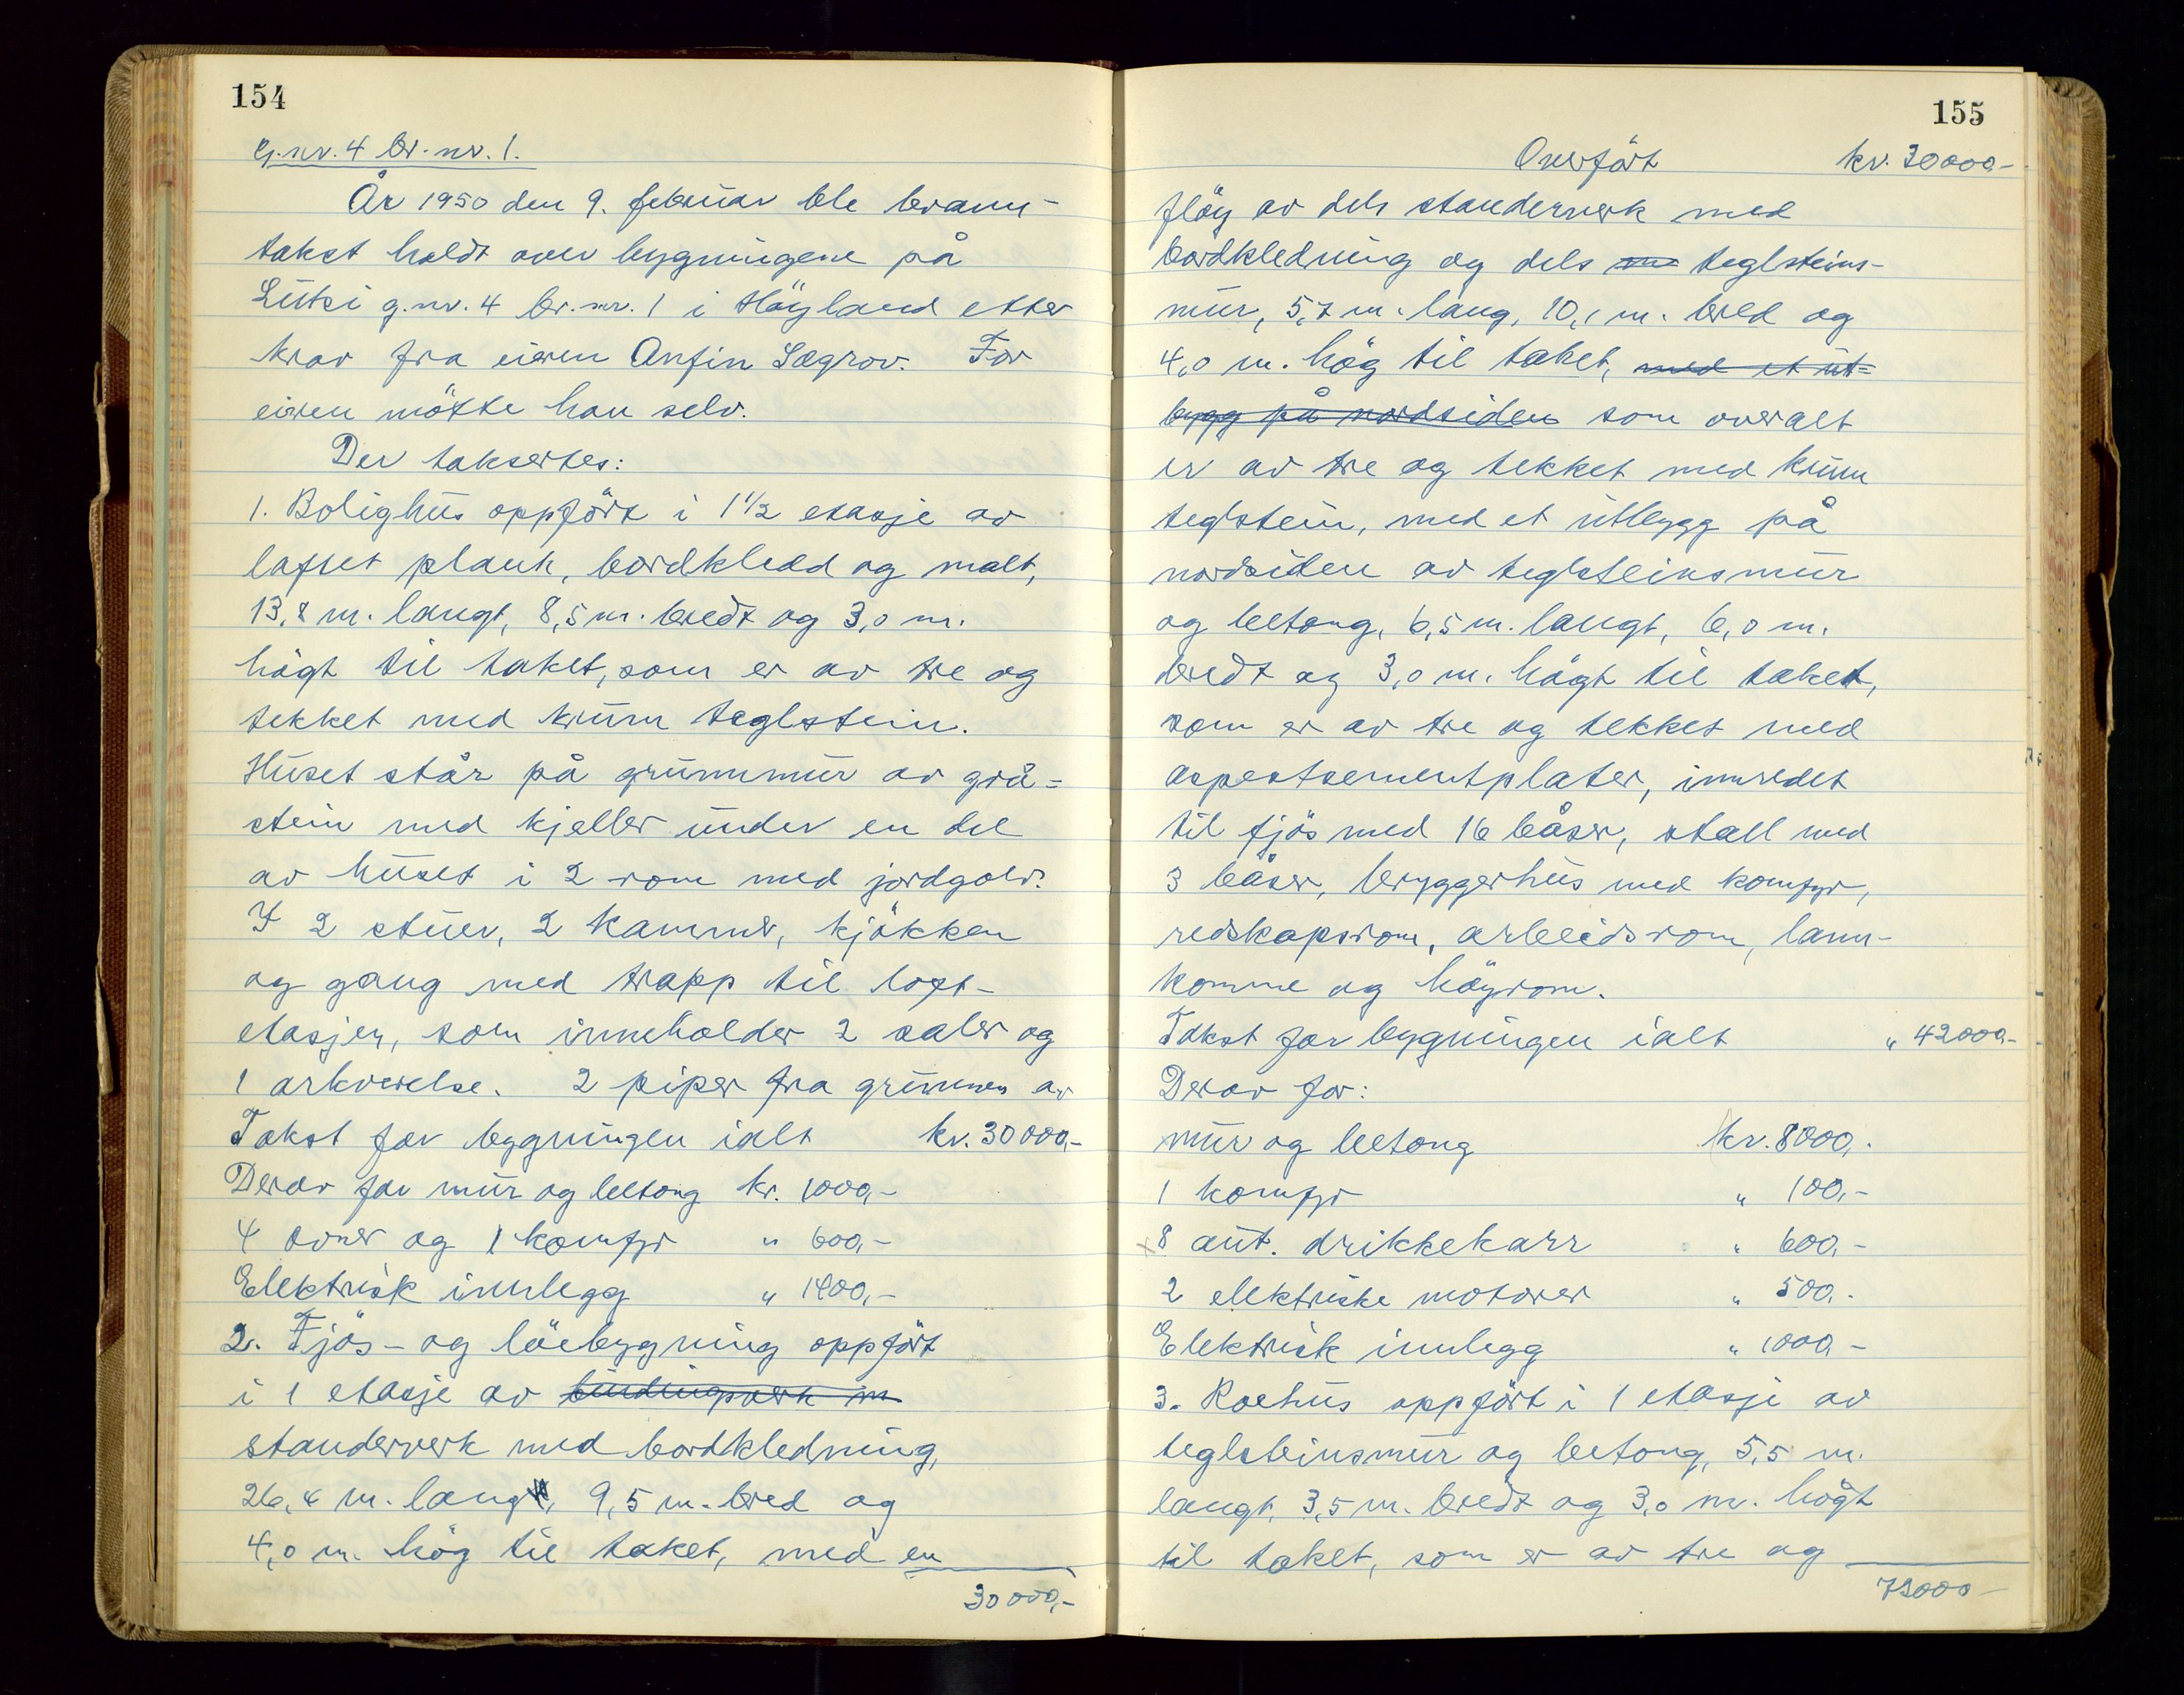 154
G.nr. 4 br.nr. 1.
År 1950 den 9. februar ble brann-
takst holdt over bygningene på
Lutsi g.nr. 4 br.nr. 1 i Höyland etter
krav fra eieren Anfin Lægrov. For
eieren mötte han selv.
Der taksertes:
1. Bolighus oppfört i 1 1/2 etasje av
laftet plank, bordkledd og malt,
13,8 m. langt, 8,5 m. bredt og 3,0 m.
högt til taket, som er av tre og
tekket med krum teglstein.
Huset står på grunnmur av grå=
stein med kjeller under en del
av huset i 2 rom med jordgolv.
I 2 stuer, 2 kammer, kjökken
og gang med trapp til loft-
etasjen, som inneholder 2 saler og
1 arkverelse. 2 piper fra grunnen av
Takst for bygningen ialt kr. 30000,-
Derav for mur og betong kr. 1000,-
4 ovner og 1 komfyr " 600,-
Elektrisk innlegg " 1400,-
2. Fjös- og löebygning oppfört
i 1 etasje av bindingsverk m
standerverk med bordkledning,
26,6 m. lang, 9,5 m. bred og
4,0 m. hög til taket, med en
30000,-
155
Overfört kr. 30000,-
flöy av dels standerverk med
bordkledning og dels teglsteins-
mur, 5,7 m. lang, 10,1 m. bred og
4,0 m. hög til taket, med et ut=
bygg på nordsiden som overalt
er av tre og tekket med krum
teglstein, med et utbygg på
nordsiden av teglsteinsmur
og betong, 6,5 m. langt, 6,0 m.
bredt og 3,0 m. högt til taket,
som er av tre og tekket med
aspestsementplater, innredet
til fjös med 16 båser, stall med
3 båser, bryggerhus med komfyr,
redskapsrom, arbeidsrom, lann-
komme og höyrom.
Takst for bygningen ialt " 42000,-
Derav for:
mur og betong kr. 8000,-
1 komfyr " 100,-
8 aut. drikkekarr " 600,-
2 elektriske motorer " 500,-
Elektrisk innlegg " 1000,-
3. Roehus oppfört i 1 etasje av
teglsteinsmur og betong, 5,5 m.
langt, 3,5 m. bredt og 3,0 m. högt
til taket, som er av tre og
72000,-